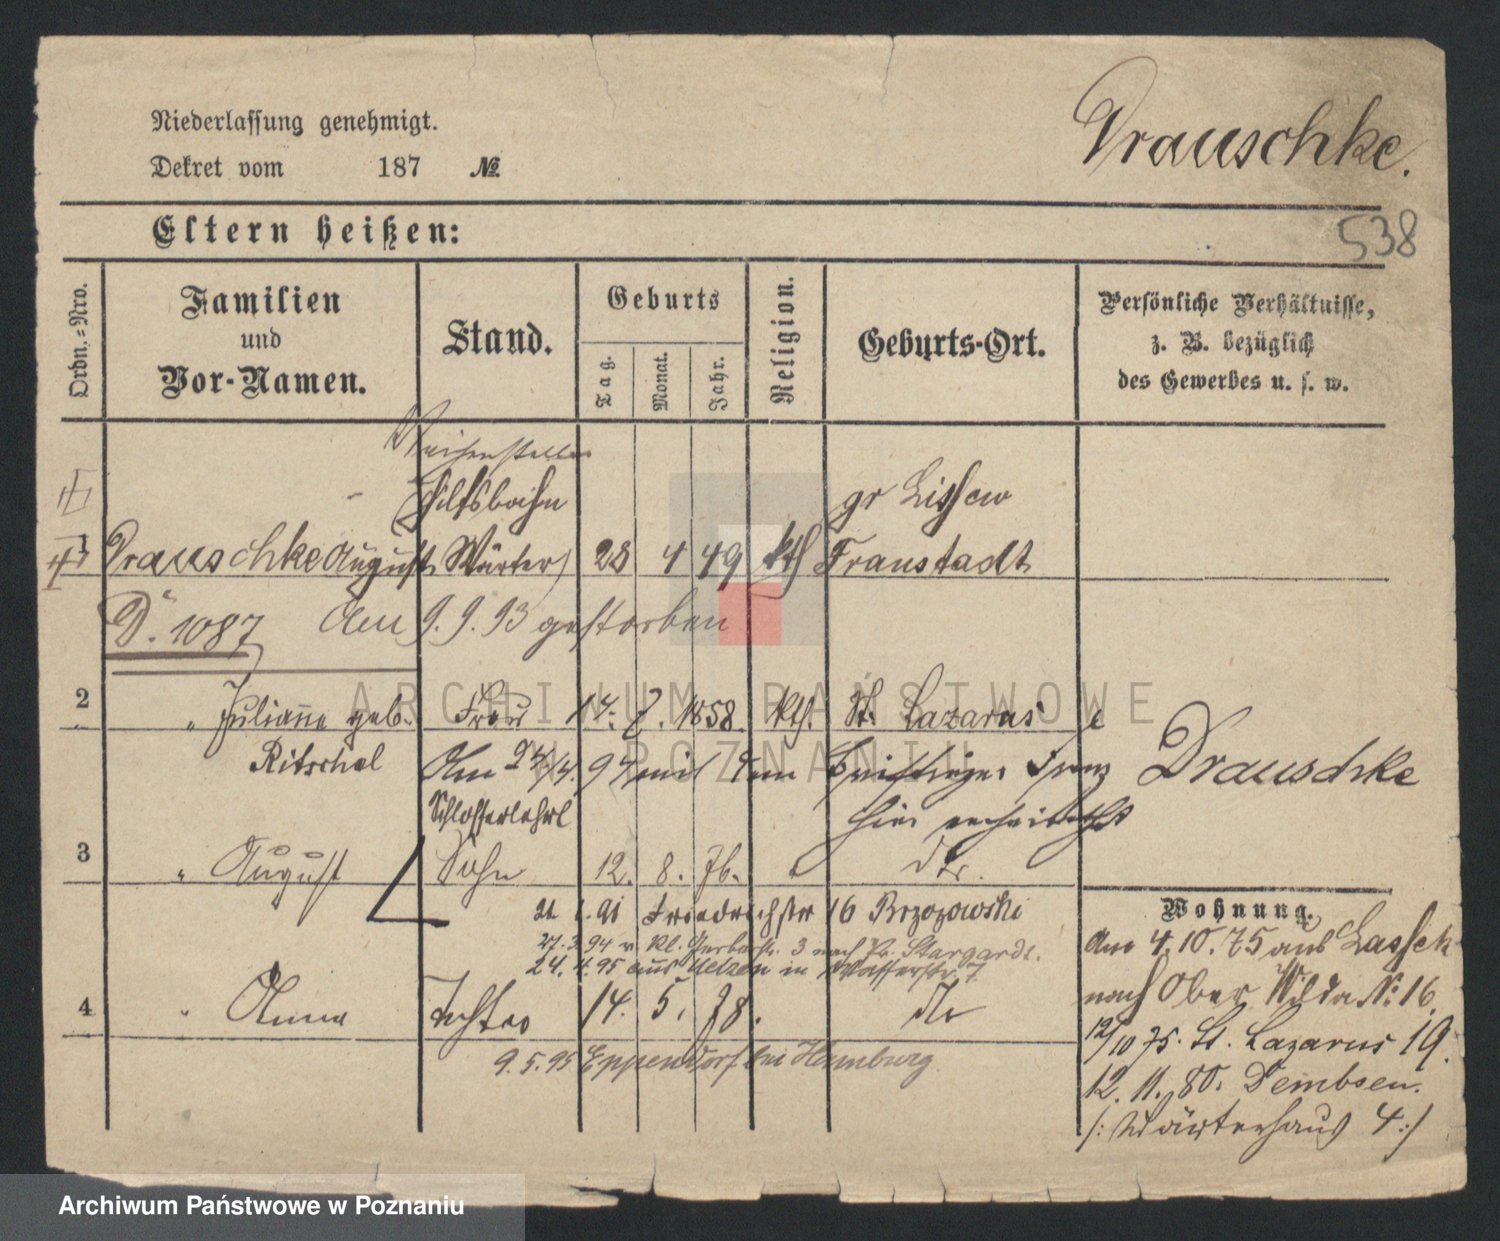 Niederlassung genehmigt.
Drauschke.
Dekret vom 187 №
Eltern heißen:
538
Ordn.-Nro.
Familien
und
Vor-Namen.
Stand.
Geburts
Tag.
Monat.
Jahr.
Religion.
Geburts-Ort.
Persönliche Verhältnisse,
z. B. bezüglich
des Gewerbes u. s. w.
Weichensteller
Hilfsbahn gr Lissew
1 Drauschke August Wärter 28 4 49 kth Fraustadt
D. 1087 Am 9.9.93 gestorben
2 " Julianna geb. Frau 17. 7. 1858 kth. St. Lazarus
Ritschel Am 24/4. 94 mit dem Franz Drauschke
Schlosserlehrl hier verheirathet
3 " August Sohn 12. 8. 76. dto.
Wohnung.
21 1.91 Friedrichstr 16 Brzozowski
27.3.94 v. Kl. Gerberstr. 3 nach Pr. Stargardt.
24.4.95 aus Uelzen in Wasserstr. 7
4 " Anna Tochter 14. 5. 78. dto
9.5.95 Eppendorf bei Hamburg
Am 4.10.75 aus Lassek
nach Ober Wilda No 16.
12/10 75. St. Lazarus 19.
12. 11. 80. Dembsen.
/: Wärterhaus 4 :/
ARCHIWUM PAŃSTWOWE
W POZNANIU
Archiwum Państwowe w Poznaniu